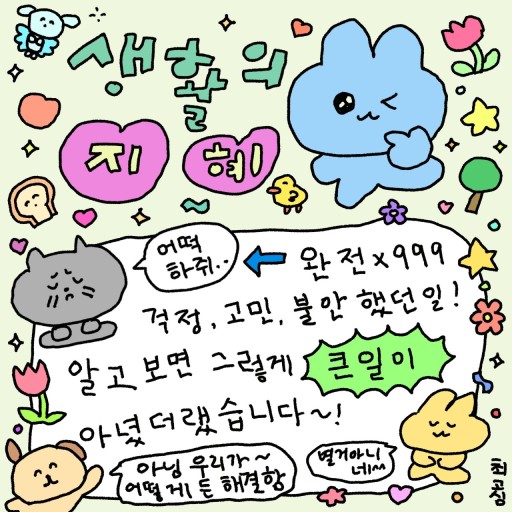 생활의
지혜
어떡
하쥐..
완전x999
걱정, 고민, 불안 했던일!
알고보면 그렇게 큰일이
아녔더랬습니다~!
아님 우리가~
어떻게든 해결함
별거아니
네~
최고심